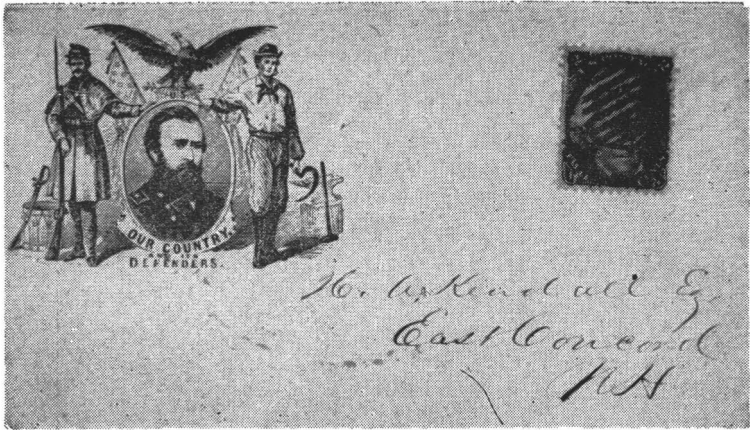 U.S.
OUR COUNTRY,
AND ITS
DEFENDERS.
H. A. Kendall Esq.
East Concord
N H